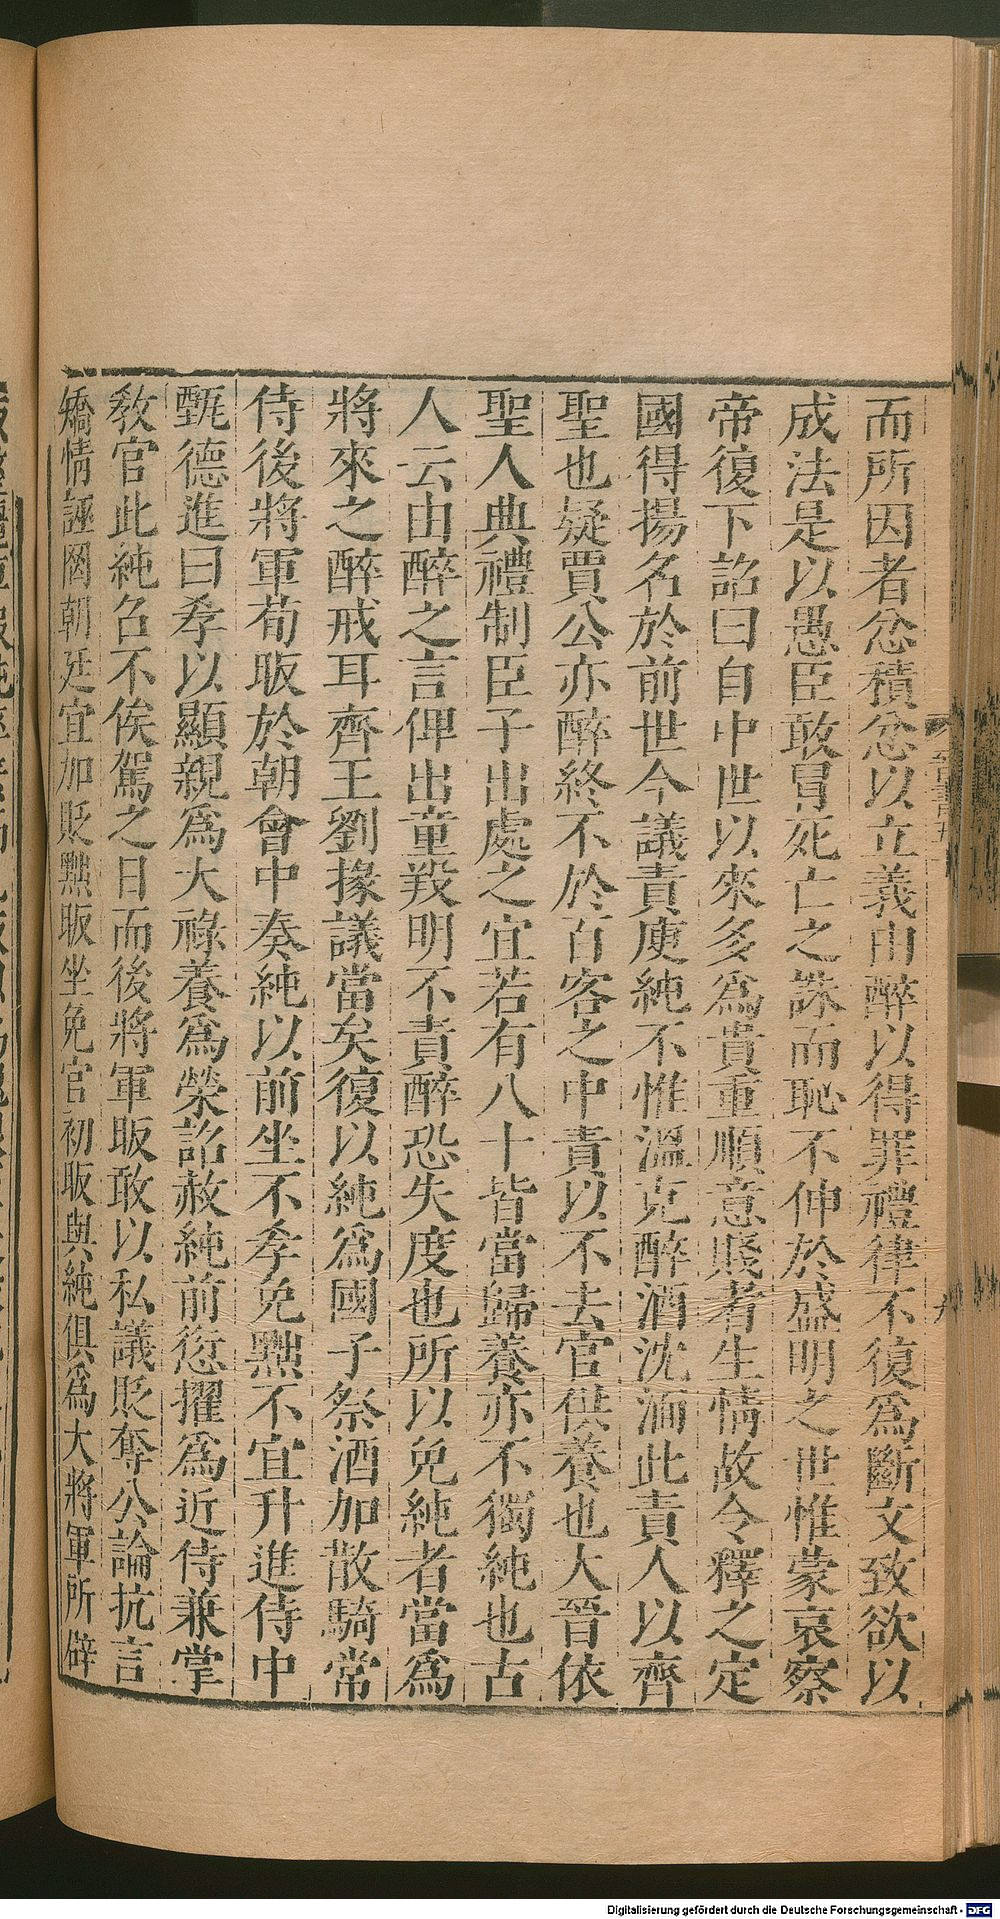 而所因者忿積忿以立義由醉以得罪禮律不復爲斷文致欲以
成法是以愚臣敢冐死亡之誅而恥不伸於盛明之世惟蒙哀察
帝復下詔曰自中世以來多爲貴重順意賤者生情故令釋之定
國得揚名於前世今議責庾純不惟溫克醉酒沈湎此責人以齊
聖也疑賈公亦醉終不於百客之中責以不去官供養也大晉依
聖人典禮制臣子出處之宜若有八十皆當歸養亦不獨純也古
人云由醉之言俾出童羖明不責醉恐失度也所以免純者當爲
將來之醉戒耳齊王劉掾議當矣復以純爲國子祭酒加散騎常
侍後將軍荀眅於朝會中奏純以前坐不孝免黜不宜升進侍中
甄德進曰孝以顯親爲大祿養爲榮詔赦純前愆擢爲近侍兼掌
敎官此純召不俟駕之日而後將軍眅敢以私議貶奪公論抗言
矯情誣罔朝廷宜加貶黜眅坐免官初眅與純俱爲大將軍所辟
晉書五
九
Digitalisierung gefördert durch die Deutsche Forschungsgemeinschaft - DFG